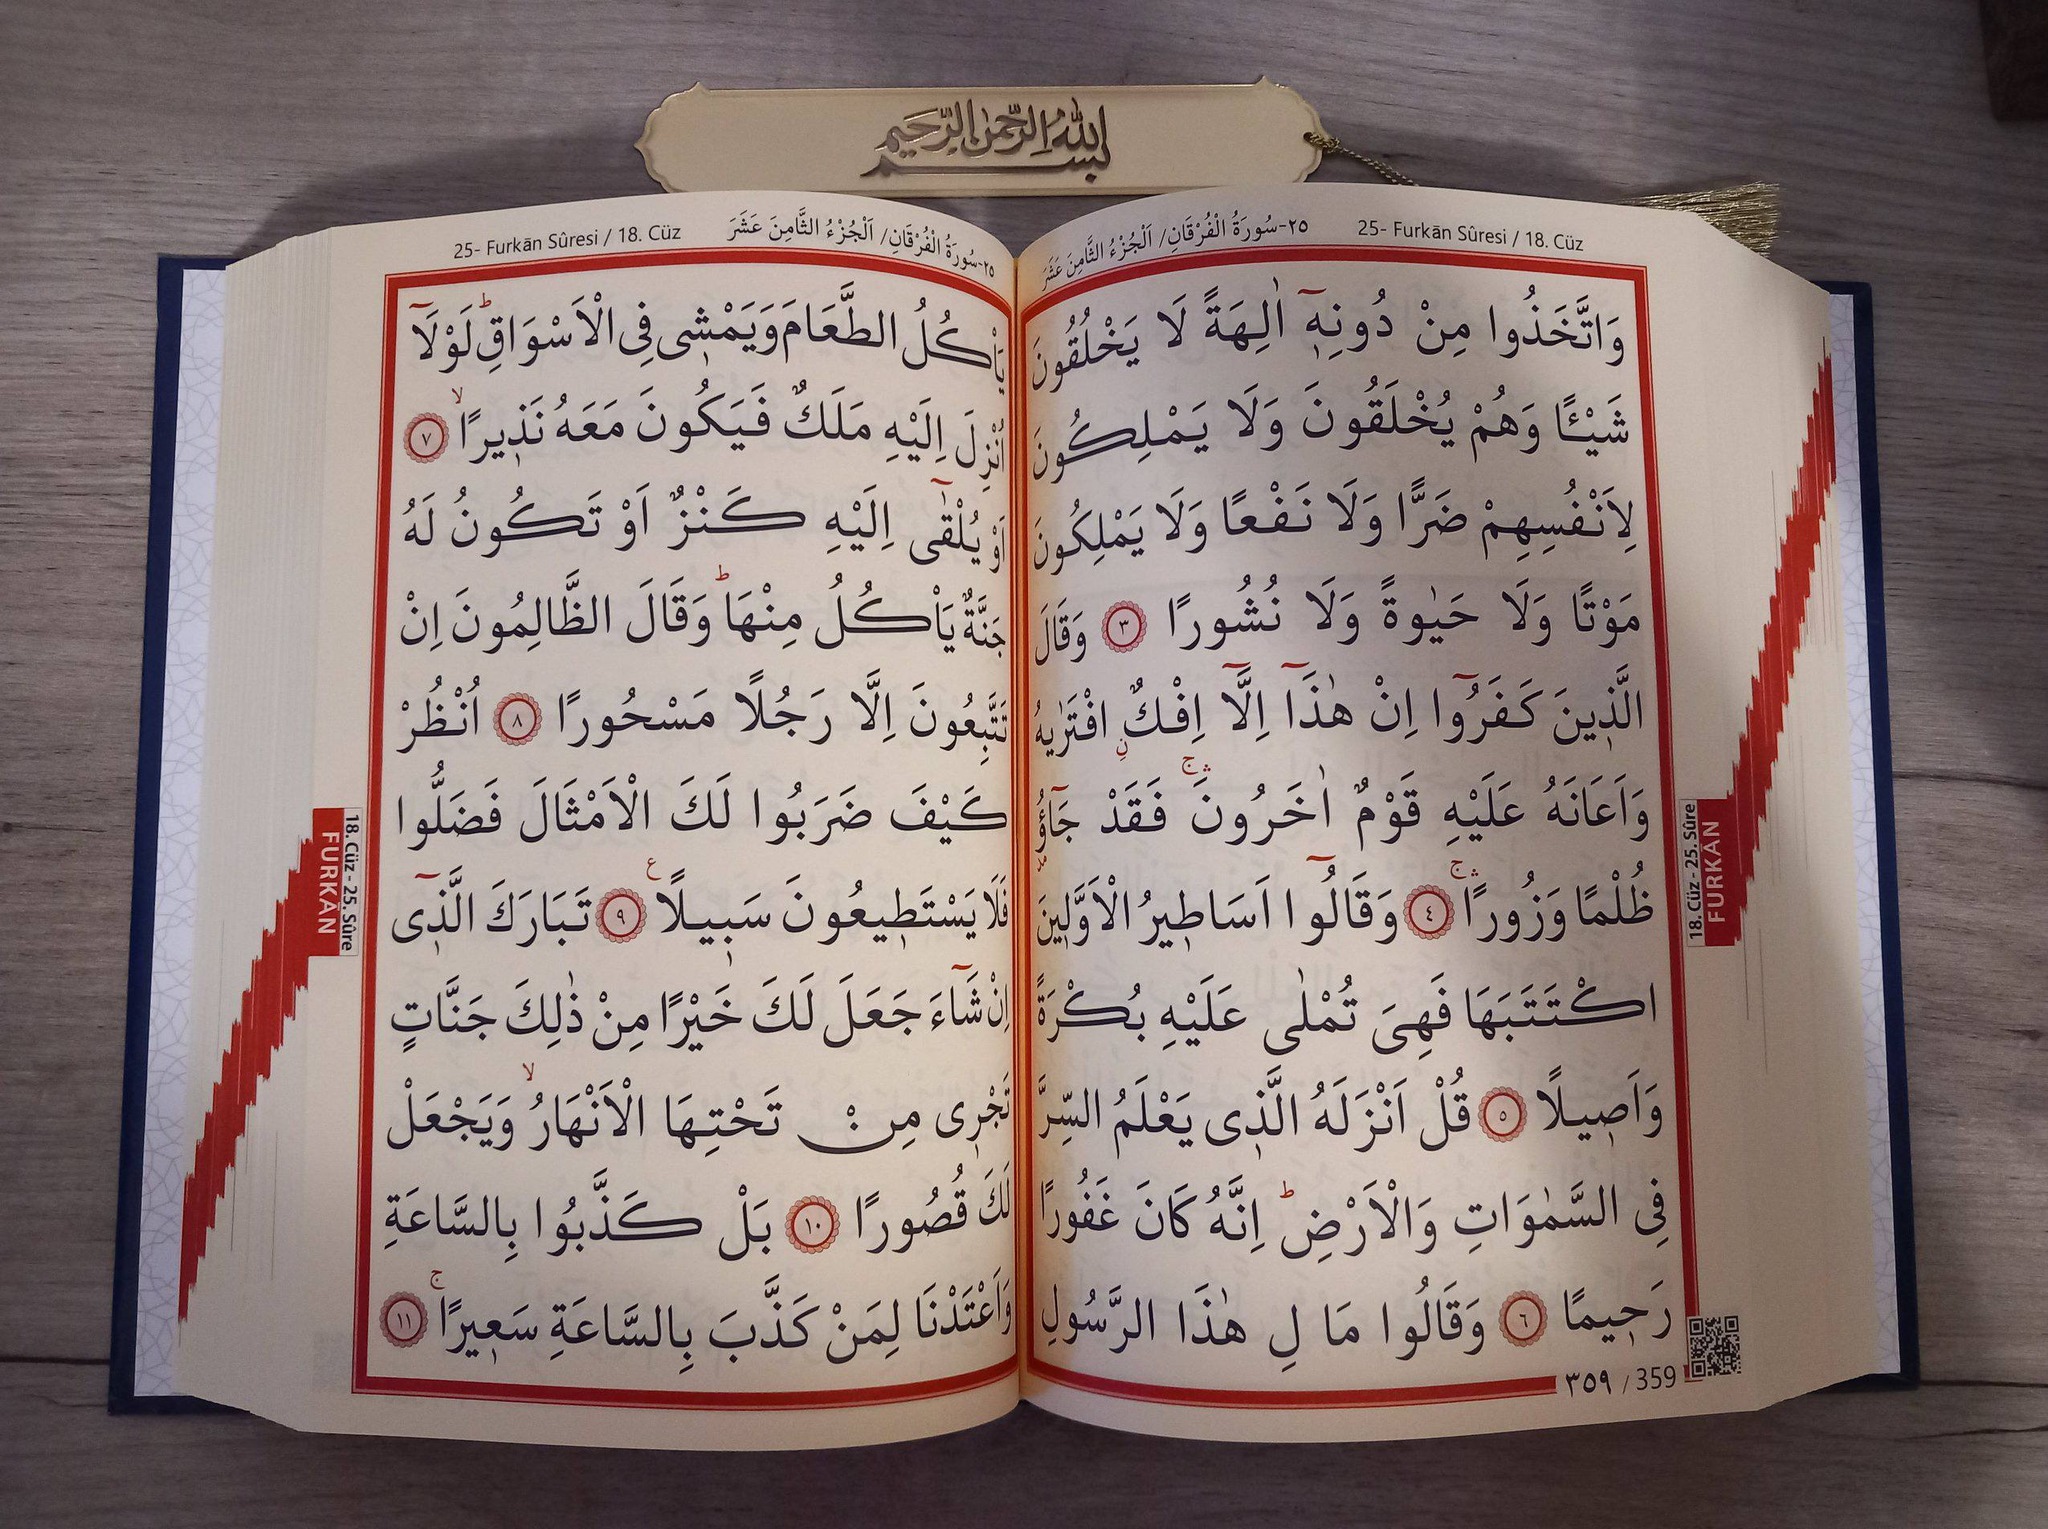 بسم الله الرحمن الرحيم
٢٥-سُورَةُ الْفُرْقَانِ/ اَلْجُزْءُ الثَّامِنَ عَشَرَ 25- Furkān Sûresi / 18. Cüz
وَاتَّخَذُوا مِنْ دُونِهٖٓ اٰلِهَةً لَا يَخْلُقُونَ
شَيْـًٔا وَهُمْ يُخْلَقُونَ وَلَا يَمْلِكُونَ
لِاَنْفُسِهِمْ ضَرًّا وَلَا نَفْعًا وَلَا يَمْلِكُونَ
مَوْتًا وَلَا حَيٰوةً وَلَا نُشُورًا ﴿٣﴾ وَقَالَ
الَّذٖينَ كَفَرُٓوا اِنْ هٰذَٓا اِلَّٓا اِفْكٌۨ افْتَرٰيهُ
وَاَعَانَهُ عَلَيْهِ قَوْمٌ اٰخَرُونَۚۛ فَقَدْ جَٓاؤُ۫
ظُلْمًا وَزُورًاۚۛ ﴿٤﴾ وَقَالُٓوا اَسَاطٖيرُ الْاَوَّلٖينَ
اكْتَتَبَهَا فَهِىَ تُمْلٰى عَلَيْهِ بُكْرَةً
وَاَصٖيلًا ﴿٥﴾ قُلْ اَنْزَلَهُ الَّذٖى يَعْلَمُ السِّرَّ
فِى السَّمٰوَاتِ وَالْاَرْضِؕ اِنَّهُ كَانَ غَفُورًا
رَحٖيمًا ﴿٦﴾ وَقَالُوا مَا لِ هٰذَا الرَّسُولِ
٣٥٩ / 359
18. Cüz - 25. Sûre
FURKĀN
25- Furkān Sûresi / 18. Cüz ٢٥-سُورَةُ الْفُرْقَانِ/ اَلْجُزْءُ الثَّامِنَ عَشَرَ
يَاْكُلُ الطَّعَامَ وَيَمْشٖى فِى الْاَسْوَاقِؕ لَوْلَٓا
اُنْزِلَ اِلَيْهِ مَلَكٌ فَيَكُونَ مَعَهُ نَذٖيرًاۙ ﴿٧﴾
اَوْ يُلْقٰٓى اِلَيْهِ كَنْزٌ اَوْ تَكُونُ لَهُ
جَنَّةٌ يَاْكُلُ مِنْهَاؕ وَقَالَ الظَّالِمُونَ اِنْ
تَتَّبِعُونَ اِلَّا رَجُلًا مَسْحُورًا ﴿٨﴾ اُنْظُرْ
كَيْفَ ضَرَبُوا لَكَ الْاَمْثَالَ فَضَلُّوا
فَلَا يَسْتَطٖيعُونَ سَبٖيلًا ع ﴿٩﴾ تَبَارَكَ الَّذٖٓى
اِنْ شَٓاءَ جَعَلَ لَكَ خَيْرًا مِنْ ذٰلِكَ جَنَّاتٍ
تَجْرٖى مِنْ تَحْتِهَا الْاَنْهَارُۙ وَيَجْعَلْ
لَكَ قُصُورًا ﴿١٠﴾ بَلْ كَذَّبُوا بِالسَّاعَةِ
وَاَعْتَدْنَا لِمَنْ كَذَّبَ بِالسَّاعَةِ سَعٖيرًاۚ ﴿١١﴾
18. Cüz - 25. Sûre
FURKĀN